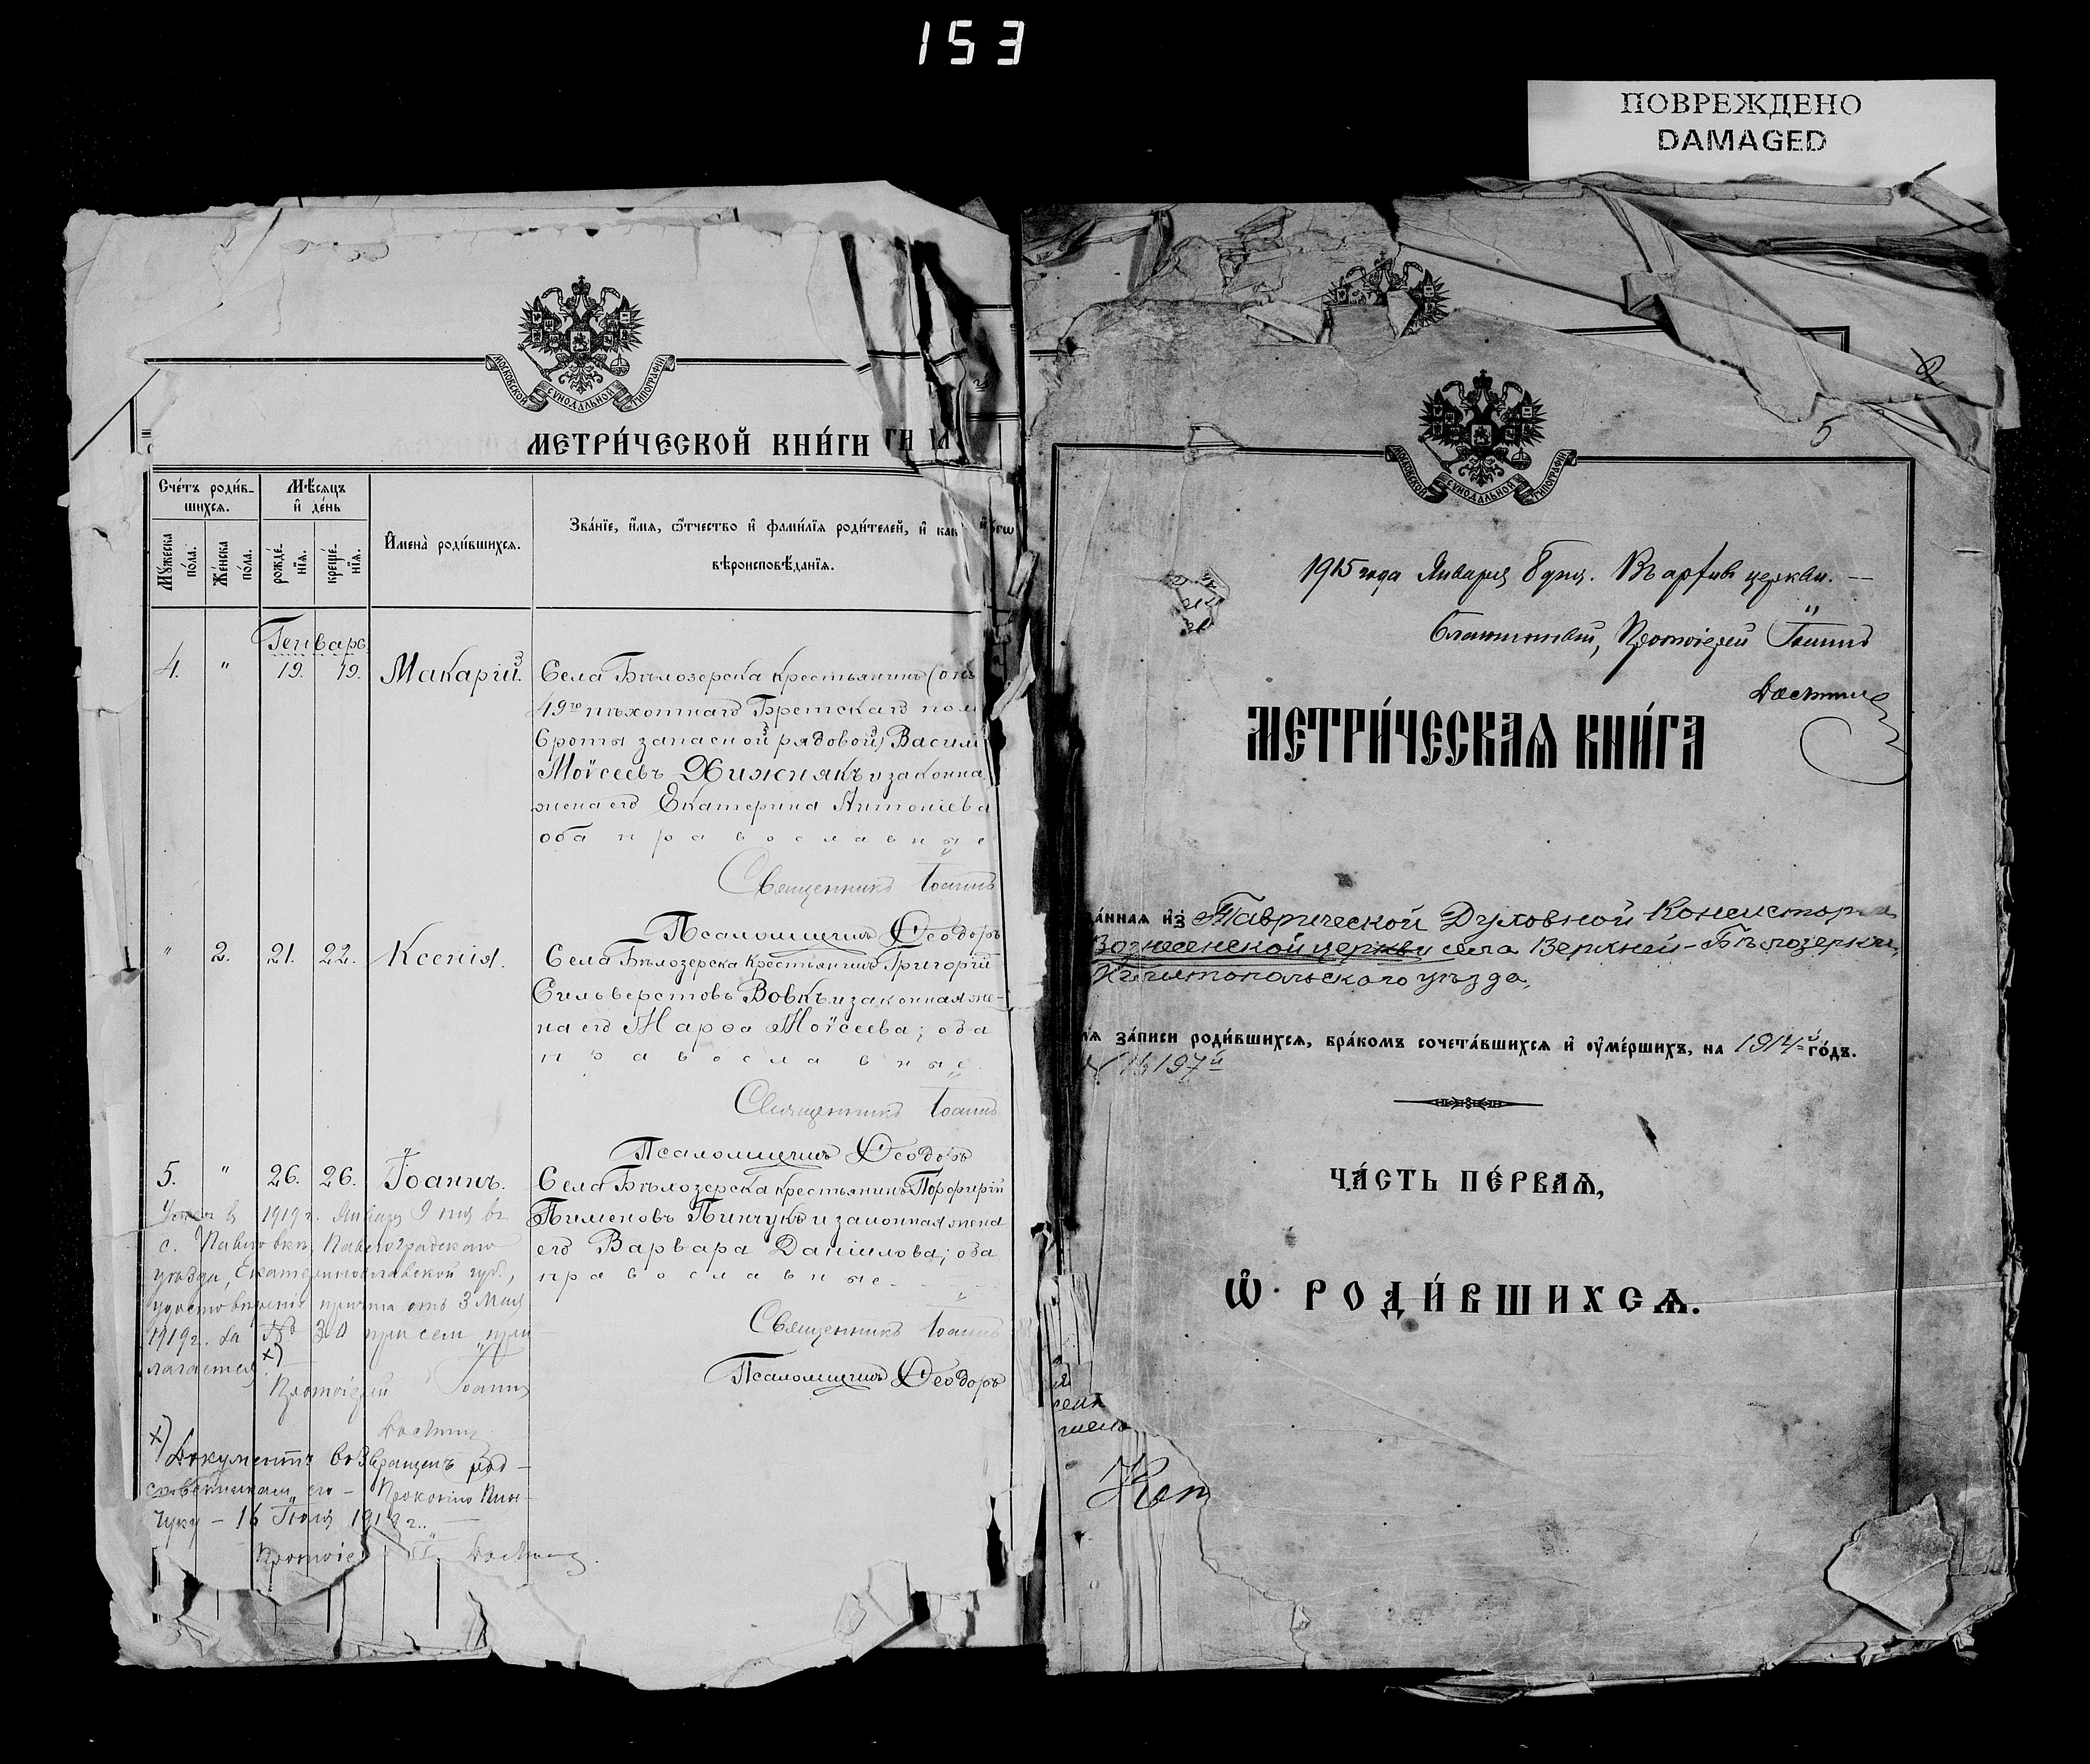 153
ПОВРЕЖДЕНО
DAMAGED
МОСКОВСКОЙ СѴНОДАЛЬНОЙ ТИПОГРАФІИ
МЕТРИ́ЧЕСКОЙ КНИ́ГИ
Сче́тъ роди́в-
шихсѧ.
Мѣ́сяцъ
и҆ де́нь
Му́жеска по́ла.
Же́нска по́ла.
рожде́-нїѧ.
креще́-нїѧ.
И҆мена̀ роди́вшихсѧ.
Зва́нїе, и҆́мѧ, ѻ҆́тчество и҆ фами́лїѧ роди́телей, и҆ как
вѣроисповѣ́данїѧ.
Генварь
4. " 19. 19. Макарій. Села Бѣлозерска крестьянинъ (онъ
49го пѣхотнаго Брестскаго пол
6 роты запасной рядовой) Васил
Моѵсеевъ Хижнякъ и законна
жена его Екатерина Антоніева
оба православные
Священникъ Іоаннъ
Псаломщикъ Ѳеодоръ
" 2. 21. 22. Ксенія. Села Бѣлозерска крестьянинъ Григорій
Сильверстовъ Вовкъ и законная же-
на его Марѳа Моѵсеева; оба
православные.
Священникъ Іоаннъ
Псаломщикъ Ѳеодоръ
5. " 26. 26. Іоаннъ. Села Бѣлозерска крестьянинъ Порфирій
Пименовъ Пинчукъ и законная жена
его Варвара Даніилова; оба
православные
Священникъ Іоаннъ
Псаломщикъ Ѳеодоръ
1919 г. Января 9 дня въ
с. Павловки, Павлоградскаго
уѣзда, Екатеринославской губ.,
удостовѣреніе причта отъ 3 Мая
1919 г. за № 30 при семъ при-
лагается х)
Протоіерей Іоаннъ
х) Документъ возвращенъ род-
ственникам его - Прокопію Пин-
чуку - 16 Іюля 1919 г.
МОСКОВСКОЙ СѴНОДАЛЬНОЙ ТИПОГРАФІИ
5
1915 года Января 8 дня. Въ архивъ церкви. —
Протоіерей Іоаннъ
МЕТРИ́ЧЕСКАѦ КНИ́ГА
а́ннаѧ и҆з̾ Таврической Духовной Консисторіи
Вознесенской церкви села Верхней-Бѣлозерки,
Мелитопольскаго уѣзда,
лѧ за́писи роди́вшихсѧ, бра́комъ сочета́вшихсѧ и҆ ѹ҆ме́ршихъ, на 1914-й го́дъ.
197й
ЧА́СТЬ ПЕ́РВАѦ,
Ѡ҆ РОДИ́ВШИХСѦ.